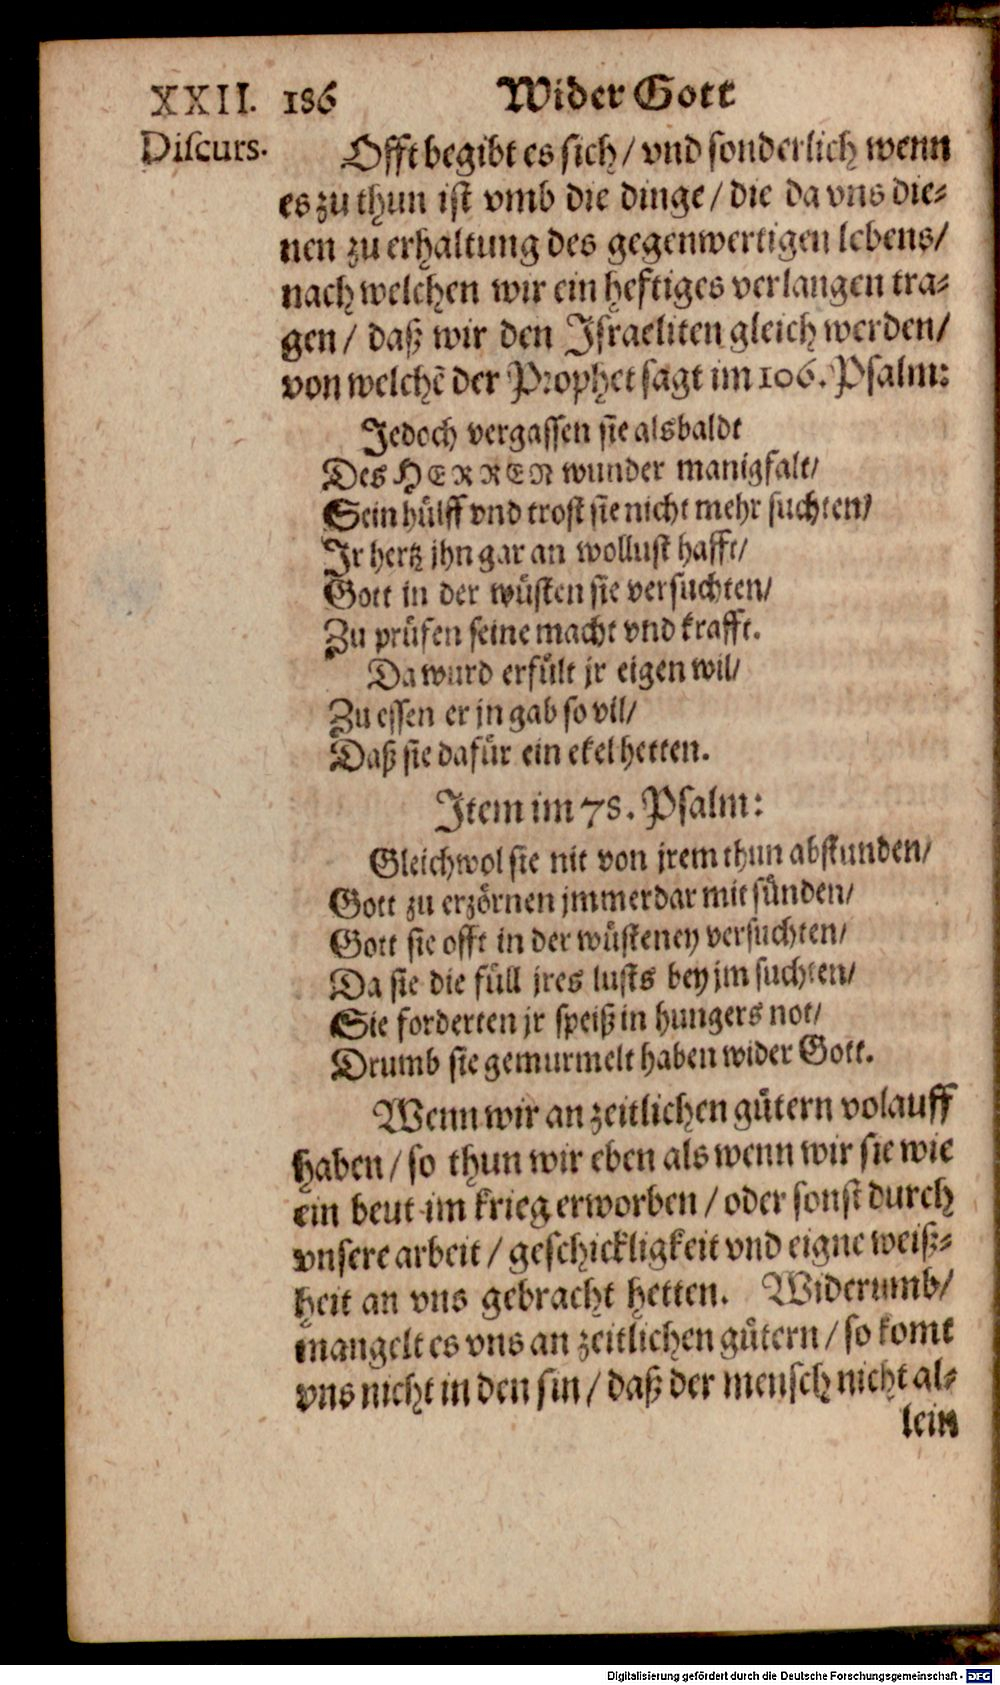 XXII. 186 Wider Gott
Discurs.
Offt begibt es sich / vnd sonderlich wenn
es zu thun ist vmb die dinge / die da vns die⸗
nen zu erhaltung des gegenwertigen lebens /
nach welchen wir ein heftiges verlangen tra⸗
gen / daß wir den Israeliten gleich werden /
von welchẽ der Prophet sagt im 106. Psalm:
Jedoch vergassen sie alsbaldt
Des HERREN wunder manigfalt /
Sein hülff vnd trost sie nicht mehr suchten /
Jr hertz jhn gar an wollust hafft /
Gott in der wüsten sie versuchten /
Zu prüfen seine macht vnd krafft.
Da wurd erfült jr eigen wil /
Zu essen er jn gab so vil /
Daß sie dafür ein ekel hetten.
Jtem im 78. Psalm:
Gleichwol sie nit von jrem thun abstunden /
Gott zu erzörnen jmmerdar mit sünden /
Gott sie offt in der wüsteney versuchten /
Da sie die füll jres lusts bey jm suchten /
Sie forderten jr speiß in hungers not /
Drumb sie gemurmelt haben wider Gott.
Wenn wir an zeitlichen gütern volauff
haben / so thun wir eben als wenn wir sie wie
ein beut im krieg erworben / oder sonst durch
vnsere arbeit / geschickligkeit vnd eigne weiß⸗
heit an vns gebracht hetten. Widerumb /
mangelt es vns an zeitlichen gütern / so komt
vns nicht in den sin / daß der mensch nicht al⸗
lein
Digitalisierung gefördert durch die Deutsche Forschungsgemeinschaft - DFG